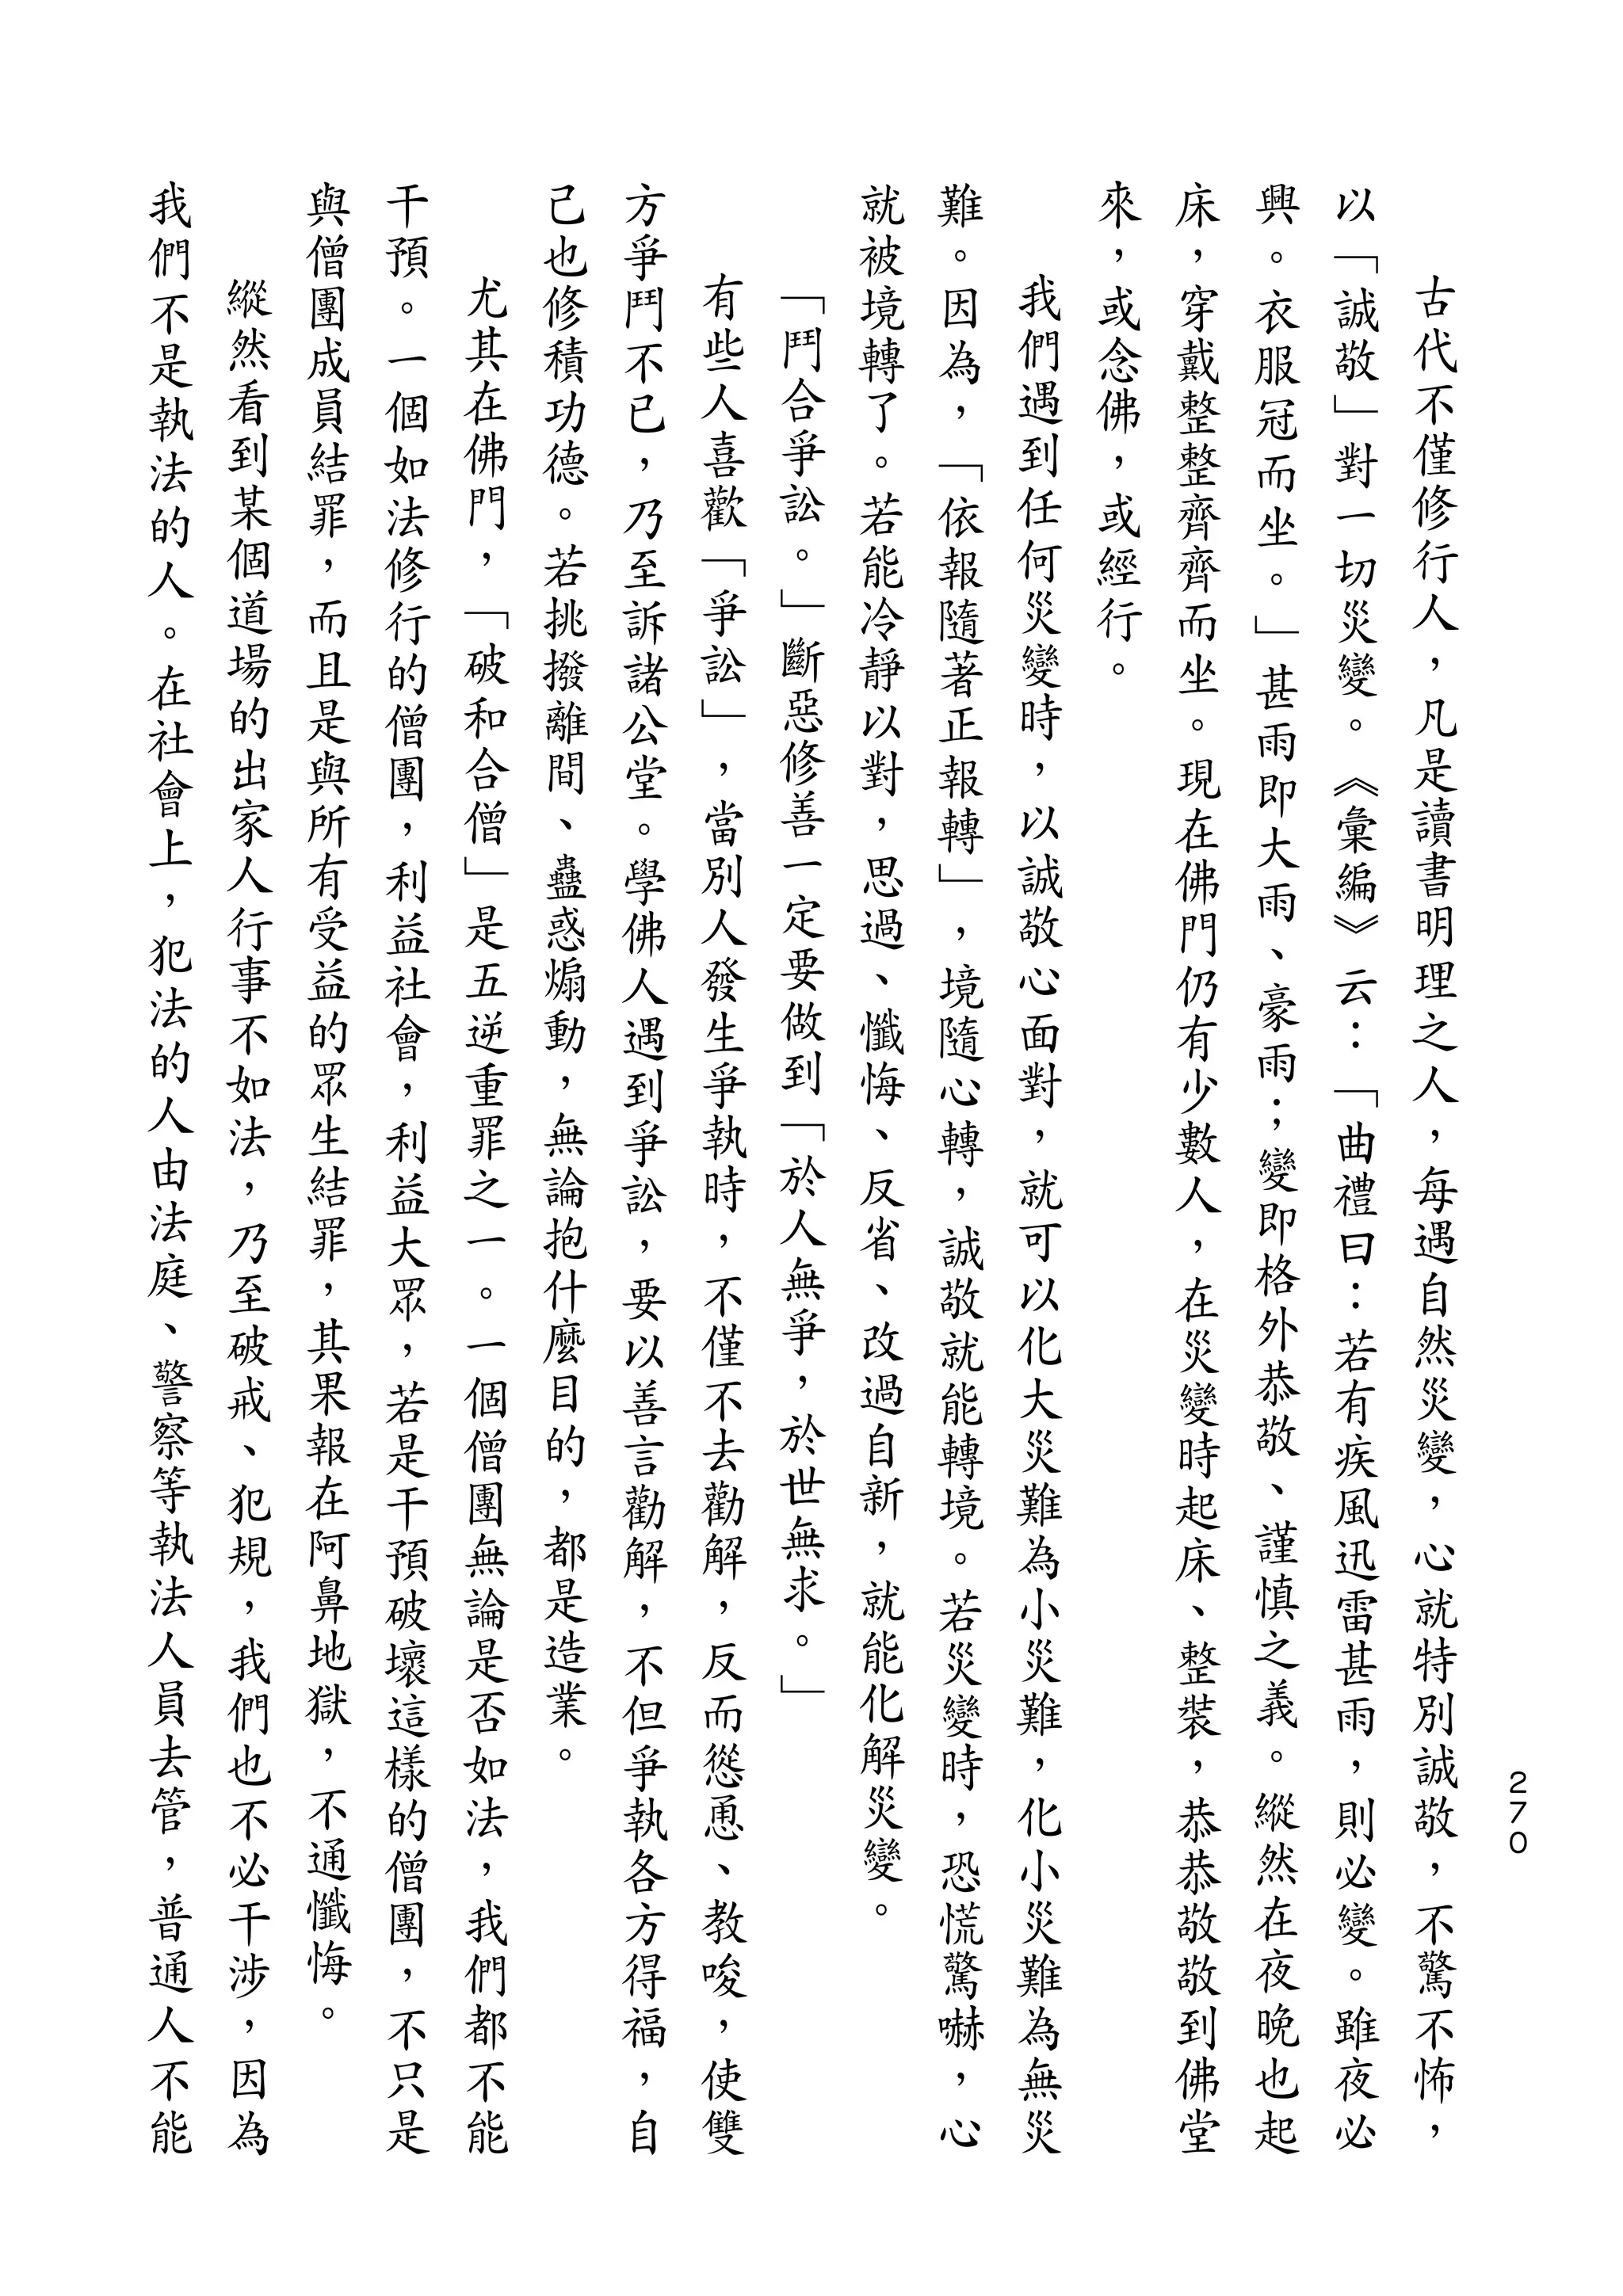 270
古代不僅修行人，凡是讀書明理之人，每遇自然災變，心就特別誠敬，不驚不怖，
以「誠敬」對一切災變。《彙編》云：「曲禮曰：若有疾風迅雷甚雨，則必變。雖夜必
興。衣服冠而坐。」甚雨即大雨、豪雨；變即格外恭敬、謹慎之義。縱然在夜晚也起
床，穿戴整整齊齊而坐。現在佛門仍有少數人，在災變時起床、整裝，恭恭敬敬到佛堂
來，或念佛，或經行。
我們遇到任何災變時，以誠敬心面對，就可以化大災難為小災難，化小災難為無災
難。因為，「依報隨著正報轉」，境隨心轉，誠敬就能轉境。若災變時，恐慌驚嚇，心
就被境轉了。若能冷靜以對，思過、懺悔、反省、改過自新，就能化解災變。
「鬥合爭訟。」斷惡修善一定要做到「於人無爭，於世無求。」
有些人喜歡「爭訟」，當別人發生爭執時，不僅不去勸解，反而慫恿、教唆，使雙
方爭鬥不已，乃至訴諸公堂。學佛人遇到爭訟，要以善言勸解，不但爭執各方得福，自
己也修積功德。若挑撥離間、蠱惑煽動，無論抱什麼目的，都是造業。
尤其在佛門，「破和合僧」是五逆重罪之一。一個僧團無論是否如法，我們都不能
干預。一個如法修行的僧團，利益社會，利益大眾，若是干預破壞這樣的僧團，不只是
與僧團成員結罪，而且是與所有受益的眾生結罪，其果報在阿鼻地獄，不通懺悔。
縱然看到某個道場的出家人行事不如法，乃至破戒、犯規，我們也不必干涉，因為
我們不是執法的人。在社會上，犯法的人由法庭、警察等執法人員去管，普通人不能